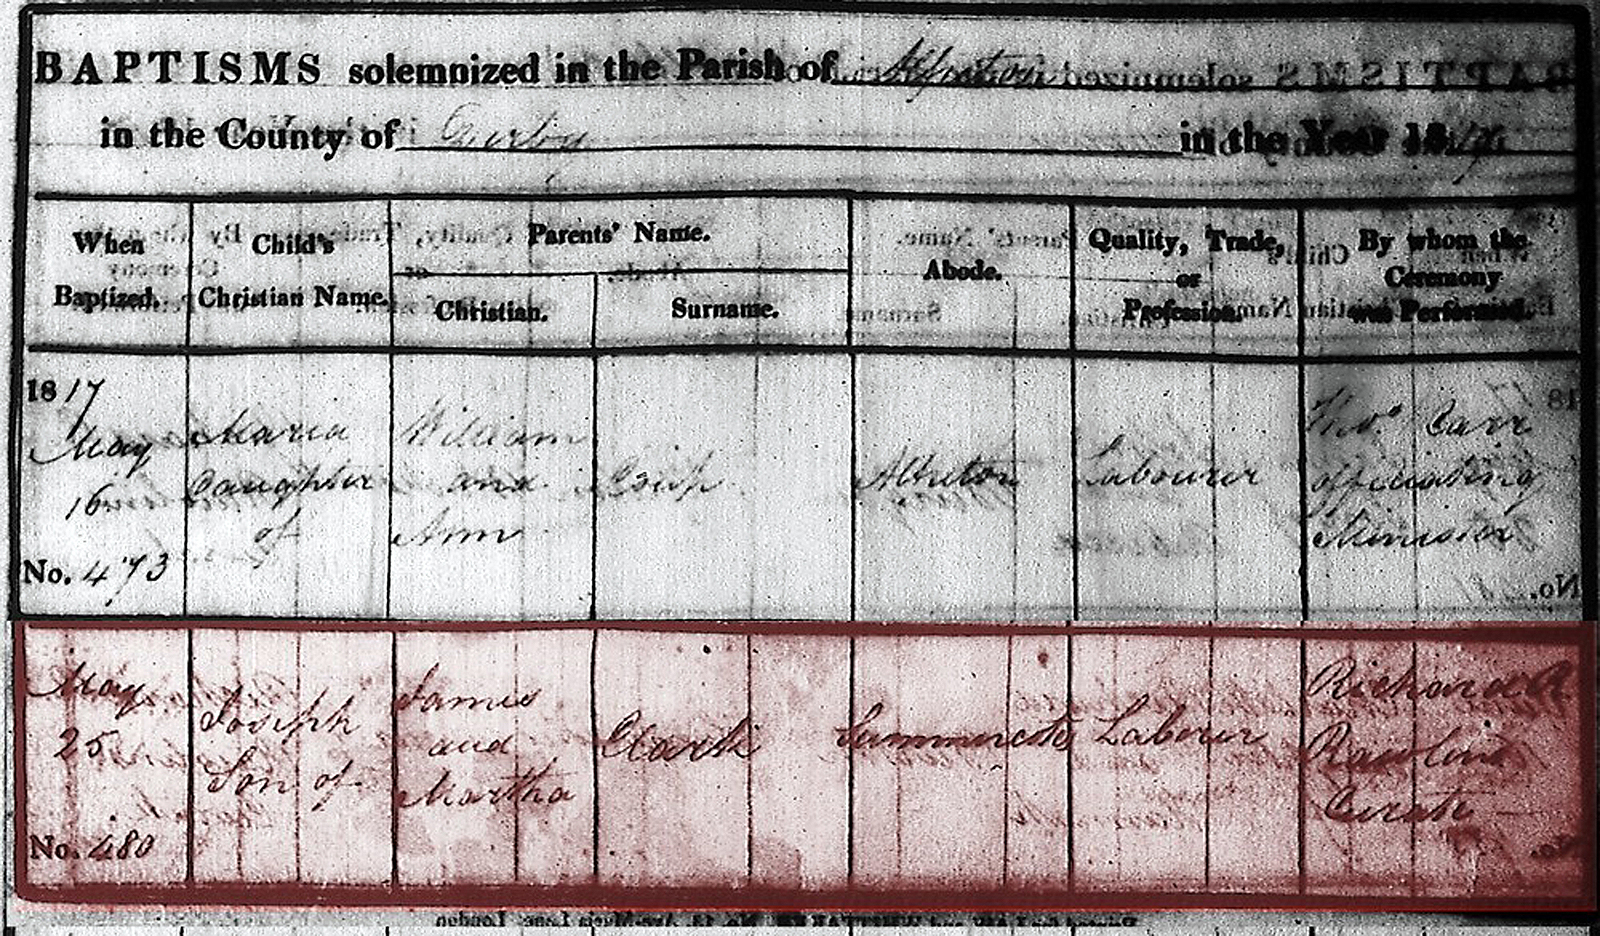 BAPTISMS solemnized in the Parish of Alfreton
in the County of Derby in the Year 1817
When Baptized. Child's Christian Name. Parents' Name. Abode. Quality, Trade, or Profession. By whom the Ceremony was Performed.
Christian. Surname.
1817
May
16
No. 473
Maria
Daughter
of
William
and
Ann
Alfreton
Labourer
Thos. Carr
officiating
Minister
May
25
No. 480
Joseph
Son of
James
and
Martha
Clark
Summercotes
Labourer
Richard R
Rawlins
Curate